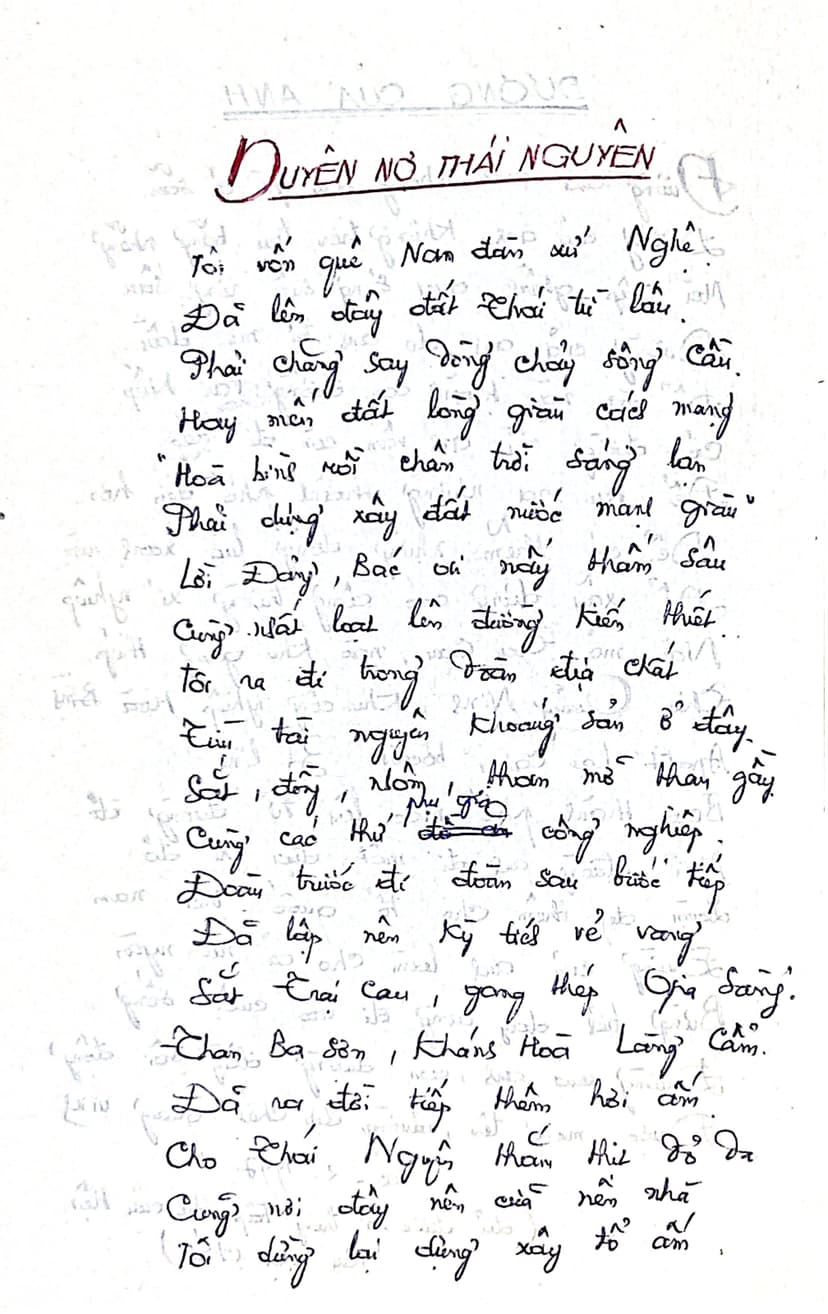 DUYÊN NỢ THÁI NGUYÊN
Tôi vốn quê Nam đàn xứ Nghệ.
Đã lên đây đất Thái từ lâu.
Phải chăng say dòng chảy sông Cầu.
Hay mến đất lòng giàu cách mạng
"Hoà bình rồi chân trời sáng lạn
Phải dựng xây đất nước mạnh giàu"
Lời Đảng, Bác ơi nấy thấm sâu
Cùng nhất loạt lên đường kiến thiết.
Tôi ra đi trong đoàn địa chất
Tìm tài nguyên khoáng sản ở đây.
Sắt, đồng, nhôm, than mỡ than gầy
phụ gia
Cùng các thứ công nghiệp.
Đoàn trước đi đoàn sau bước tiếp
Đã lập nên kỳ tích vẻ vang
Sắt Trại Cau, gang thép Gia Sàng.
Than Ba Sơn, Khánh Hoà Làng Cẩm.
Đã ra đời tiếp thêm hơi ấm.
Cho Thái Nguyên thắm thịt đỏ da
Cũng nơi đây nên cửa nên nhà
Tôi dừng lại dựng xây tổ ấm.